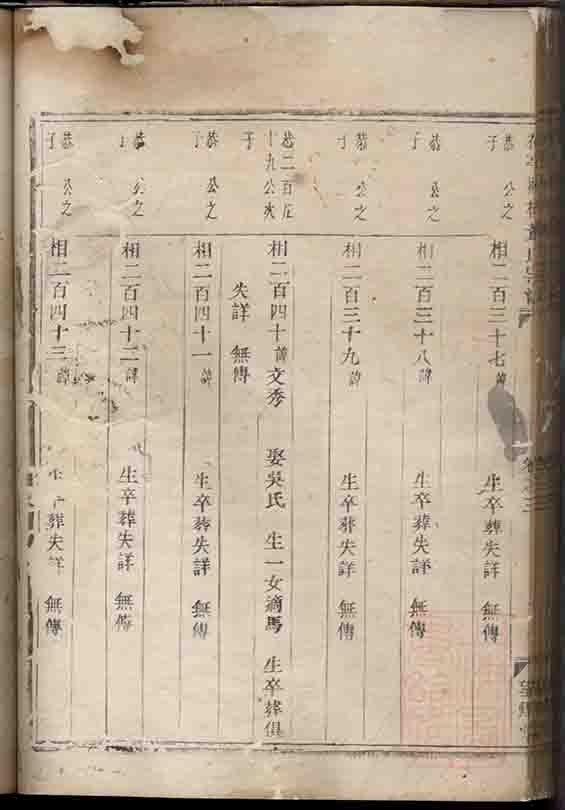 恭 公之子
相二百三十七諱 生卒葬失詳 無傳
恭 公之子
相二百三十八諱 生卒葬失詳 無傳
恭 公之子
相二百三十九諱 生卒葬失詳 無傳
恭二百 十九公次子
相二百四十諱文秀 娶吳氏 生一女適馬 生卒葬俱
失詳 無傳
恭 公之子
相二百四十一諱 生卒葬失詳 無傳
恭 公之子
相二百四十二諱 生卒葬失詳 無傳
恭 公之子
相二百四十三諱 生卒葬失詳 無傳